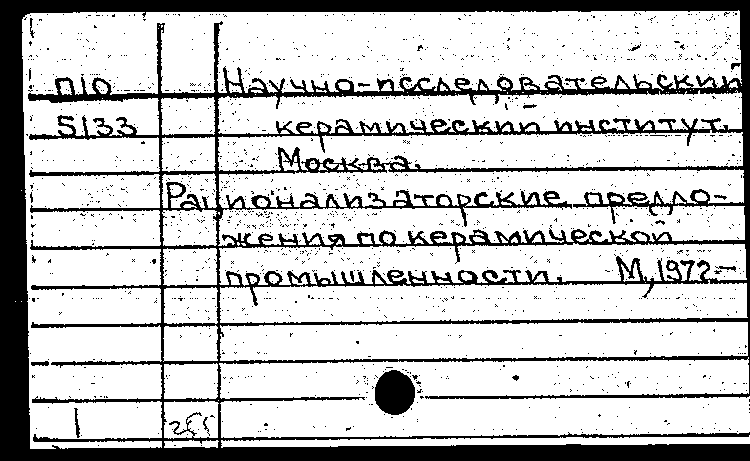 П10 Научно-исследовательский
5133 керамический институт.
Москва.
Рационализаторские предло-
жения по керамической
промышленности. М, 1972.-
1